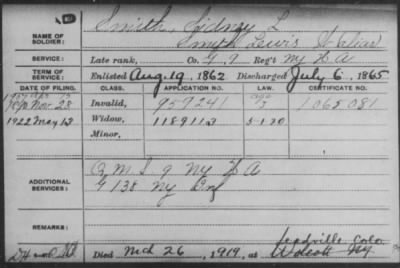 Smith, Sidney L
NAME OF SOLDIER:
Smyth Lewis S (alias)
SERVICE:
Late rank, Co. G, 9 Reg't NY H A
TERM OF SERVICE:
Enlisted Aug. 19, 1862 Discharged July 6, 1865
DATE OF FILING. CLASS. APPLICATION NO. LAW. CERTIFICATE NO.
Nov. 28 Invalid, 957241 1065081
1922 May 13 Widow, 1189113 5-1-20
Minor,
ADDITIONAL SERVICES:
Q M S 9 NY H A
G 138 NY Inf
REMARKS:
Leadville, Colo
Died Mch 26, 1919, at Wolcott NY